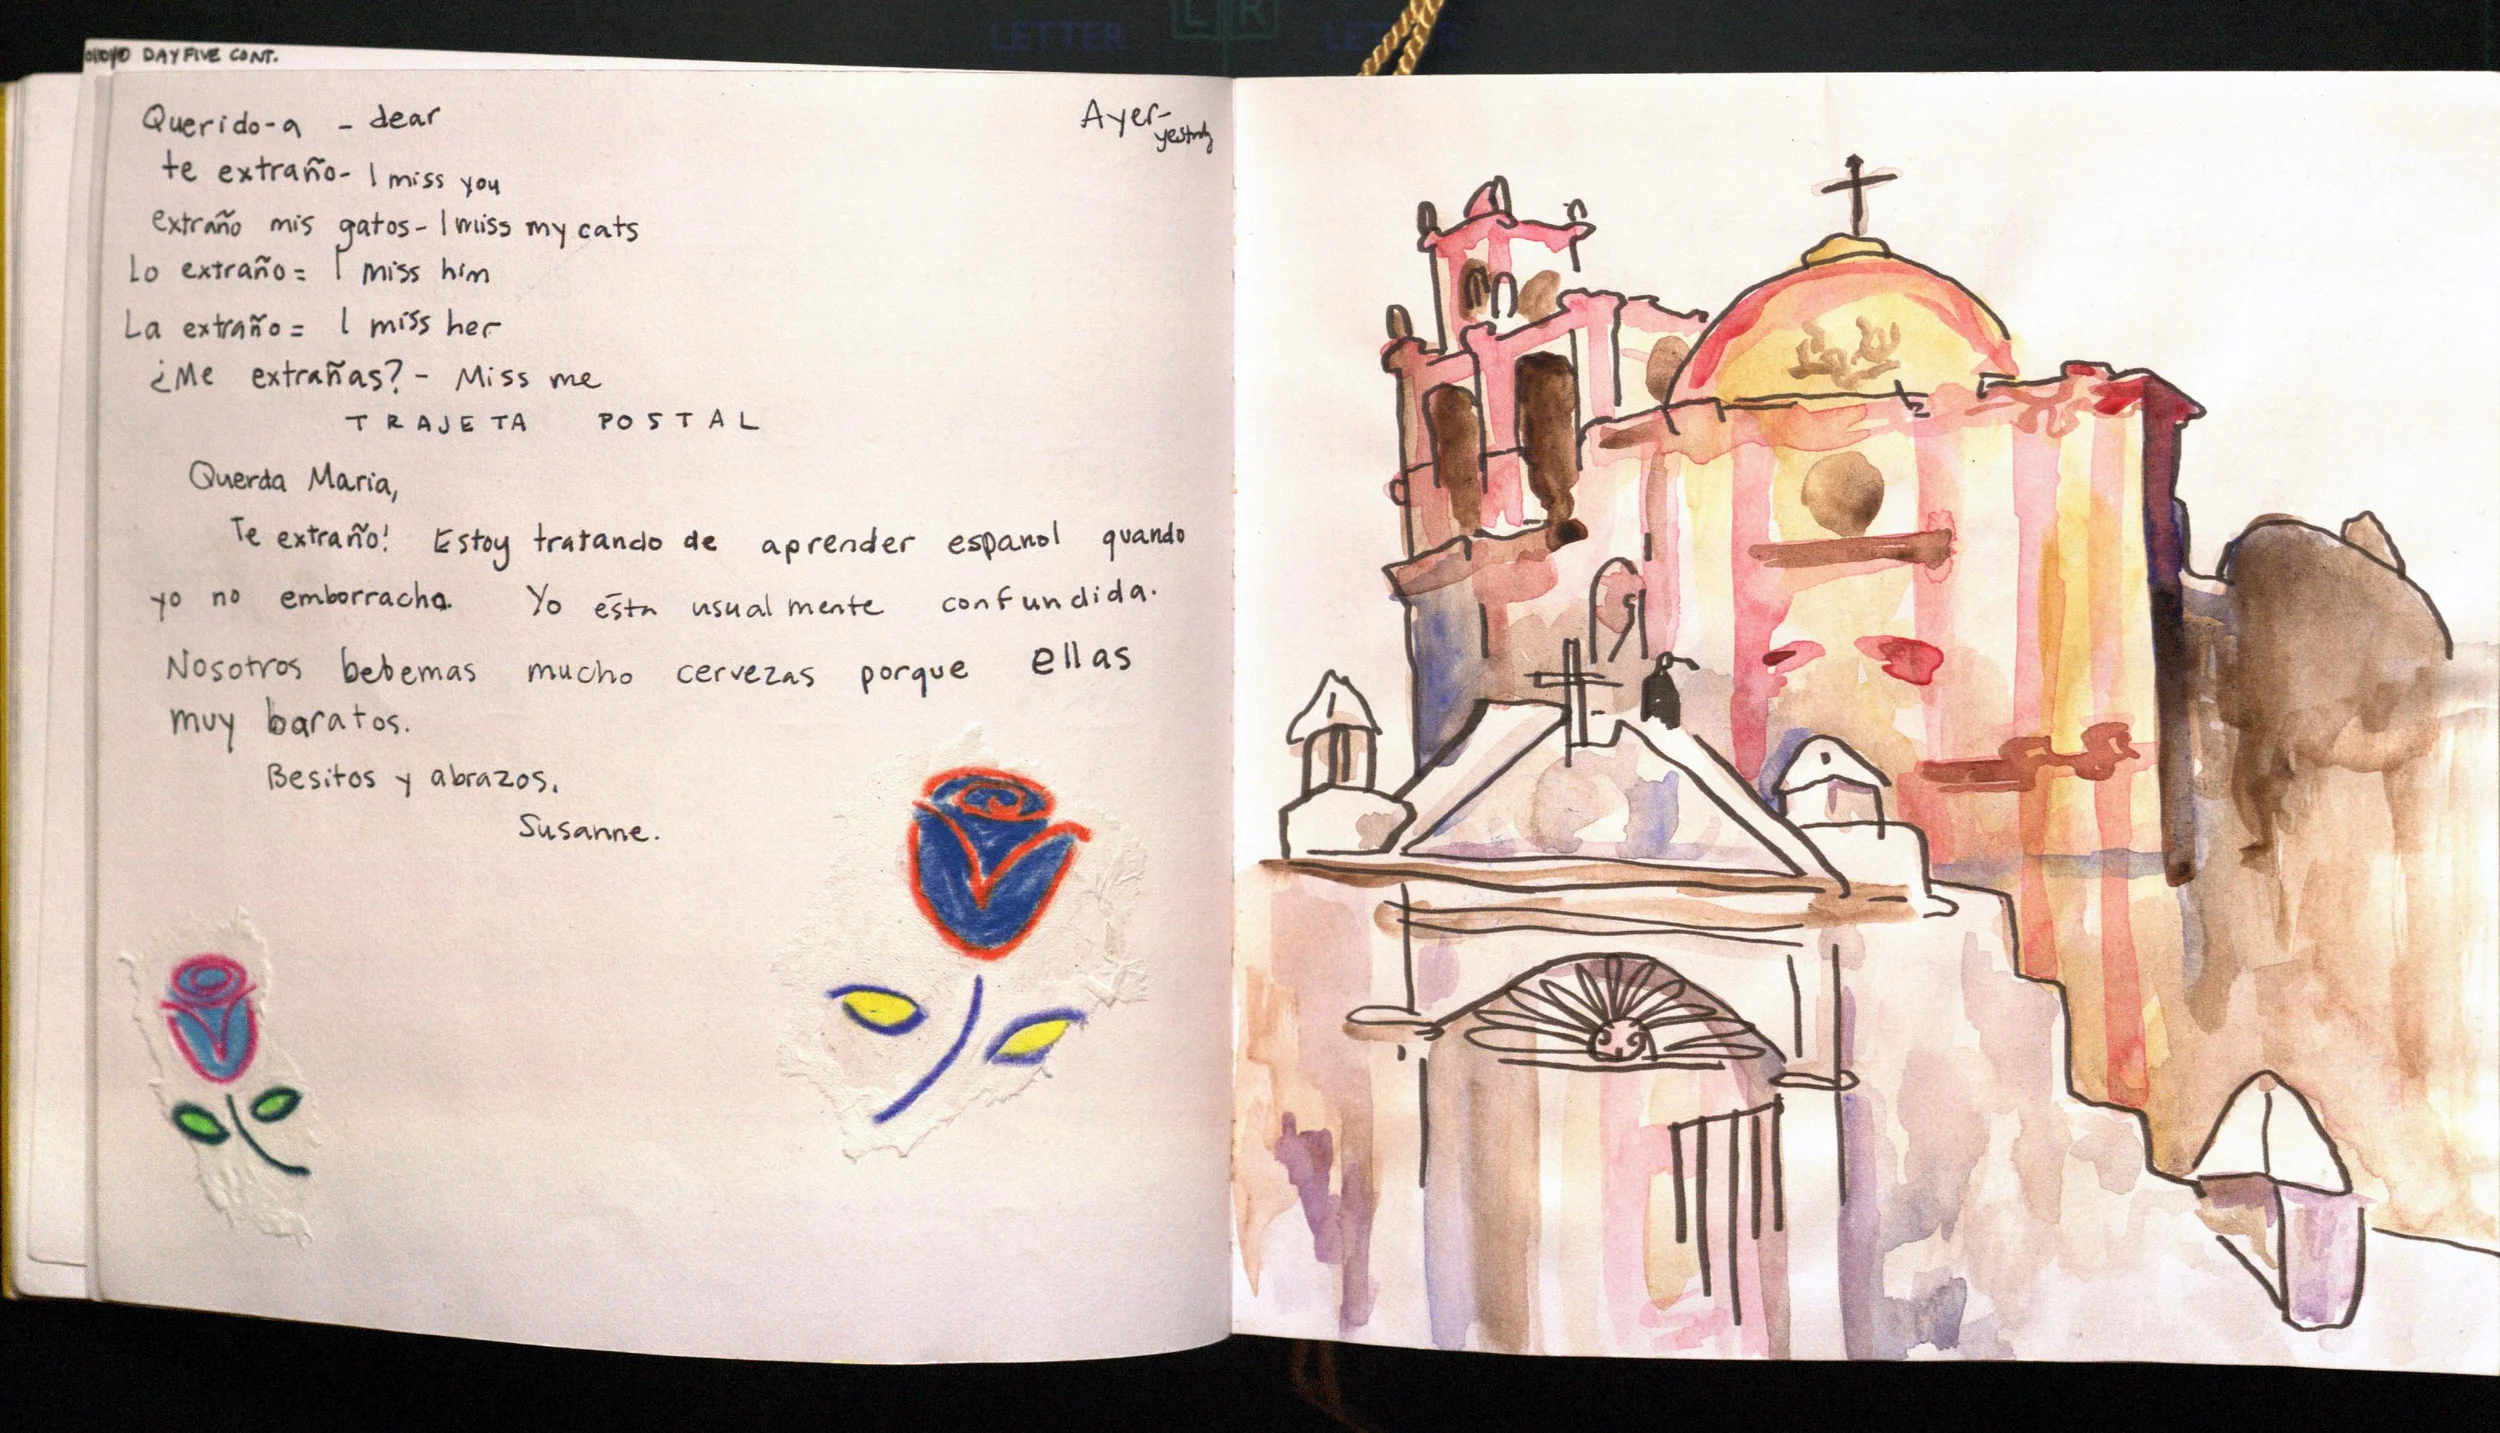 LETTER L R LETTER
DAY FIVE CONT.
Querido-a - dear
Ayer-
te extraño- I miss you
extraño mis gatos- I miss my cats
Lo extraño= I miss him
La extraño= I miss her
¿Me extrañas? - Miss me
TRAJETA POSTAL
Querda Maria,
Te extraño! Estoy tratando de aprender espanol quando
yo no emborracha. Yo ésta usualmente confundida.
Nosotros bebemas mucho cervezas porque ellas
muy baratos.
Besitos y abrazos,
Susanne.